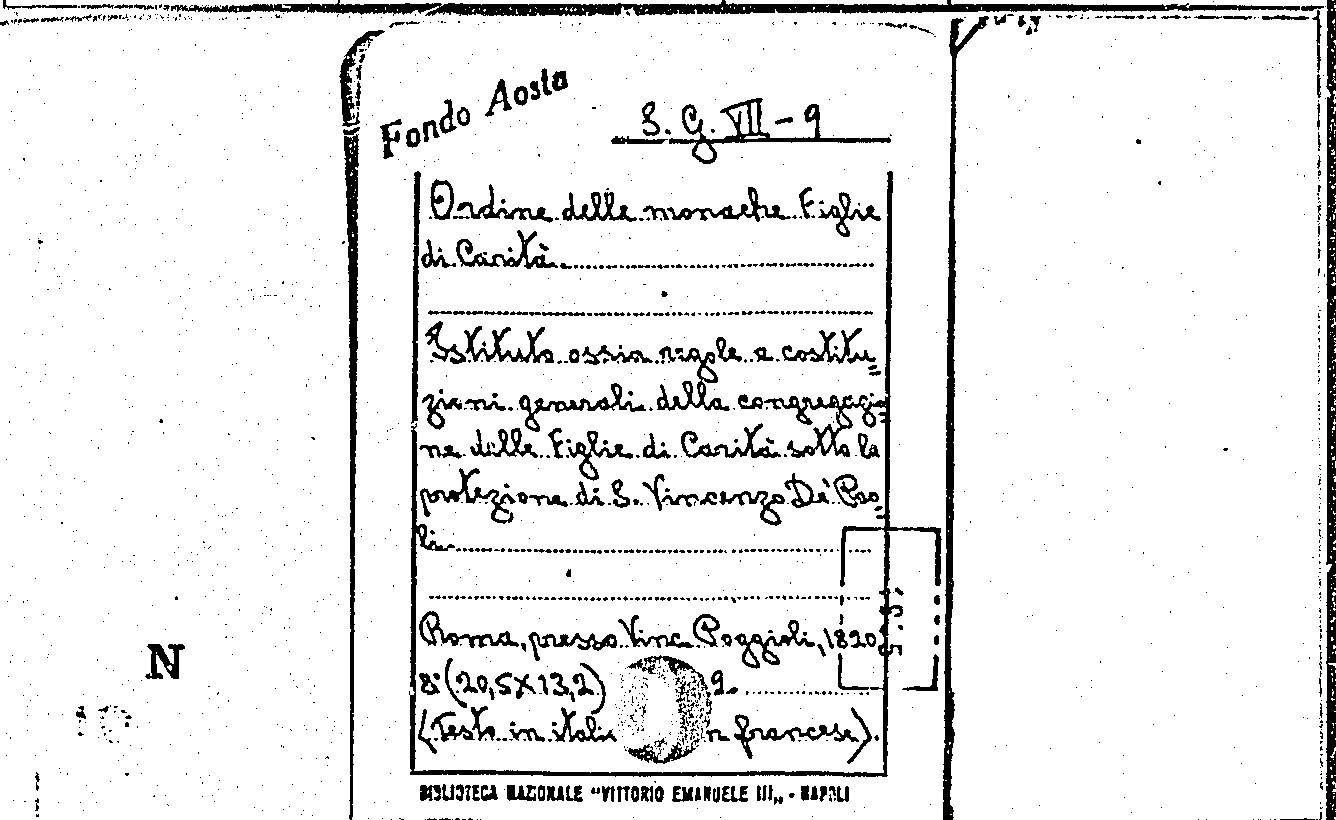 Fondo Aosta
S. G. VII - 9
Ordine delle monache Figlie
di Carità.
Istituto ossia regole e costitu=
zioni generali della congregazio=
ne delle Figlie di Carità sotto la
protezione di S. Vincenzo De' Pao=
li.
Roma, presso Vinc. Poggioli, 1820,
8° (20,5X13,2) 9.
(Testo in n francese).
BIBLIOTECA NAZIONALE "VITTORIO EMANUELE III„ - NAPOLI
N